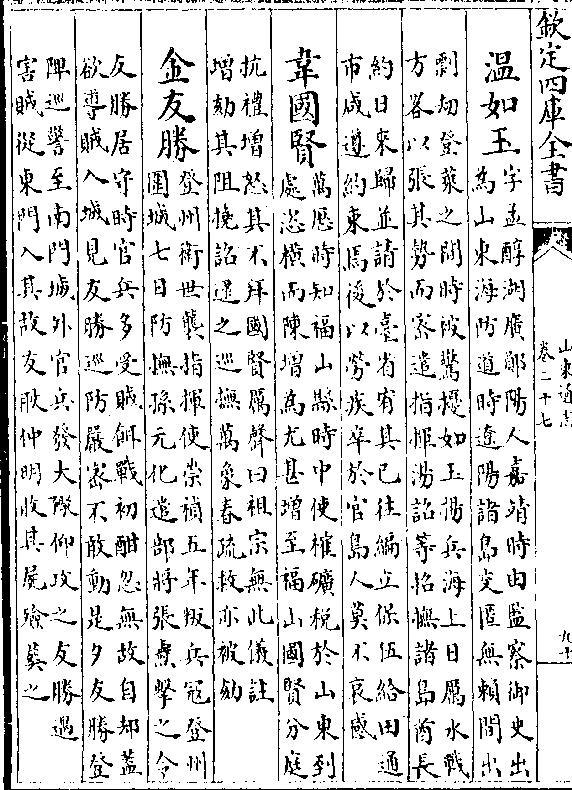 欽定四庫全書
山東通志
卷二十七
九十
温如玉字孟醇湖廣鄖陽人嘉靖時由監察御史出
為山東海防道時遼陽諸島支匿無賴間出
剽刼登萊之間時被驚擾如玉揚兵海上日厲水戰
方畧以張其勢而密遣指揮湯詔等招撫諸島酋長
約日來歸並請於臺省宥其已往編立保伍給田通
市咸遵約束焉後以勞疾卒於官島人莫不哀感
韋國賢萬歷時知福山縣時中使榷礦稅於山東到
處恣横而陳増為尤甚増至福山國賢分庭
抗禮増怒其不拜國賢厲聲曰祖宗無此儀註
増劾其阻撓詔逮之巡撫萬象春疏救亦被劾
金友勝登州衛世襲指揮使崇禎五年叛兵冦登州
圍城七日防撫孫元化遣部將張燾擊之令
友勝居守時官兵多受賊餌戰初酣忽無故自却蓋
欲導賊入城見友勝巡防嚴密不敢動是夕友勝登
陴巡警至南門城外官兵發大隊仰攻之友勝遇
害賊從東門入其故友耿仲明收其屍殮葬之